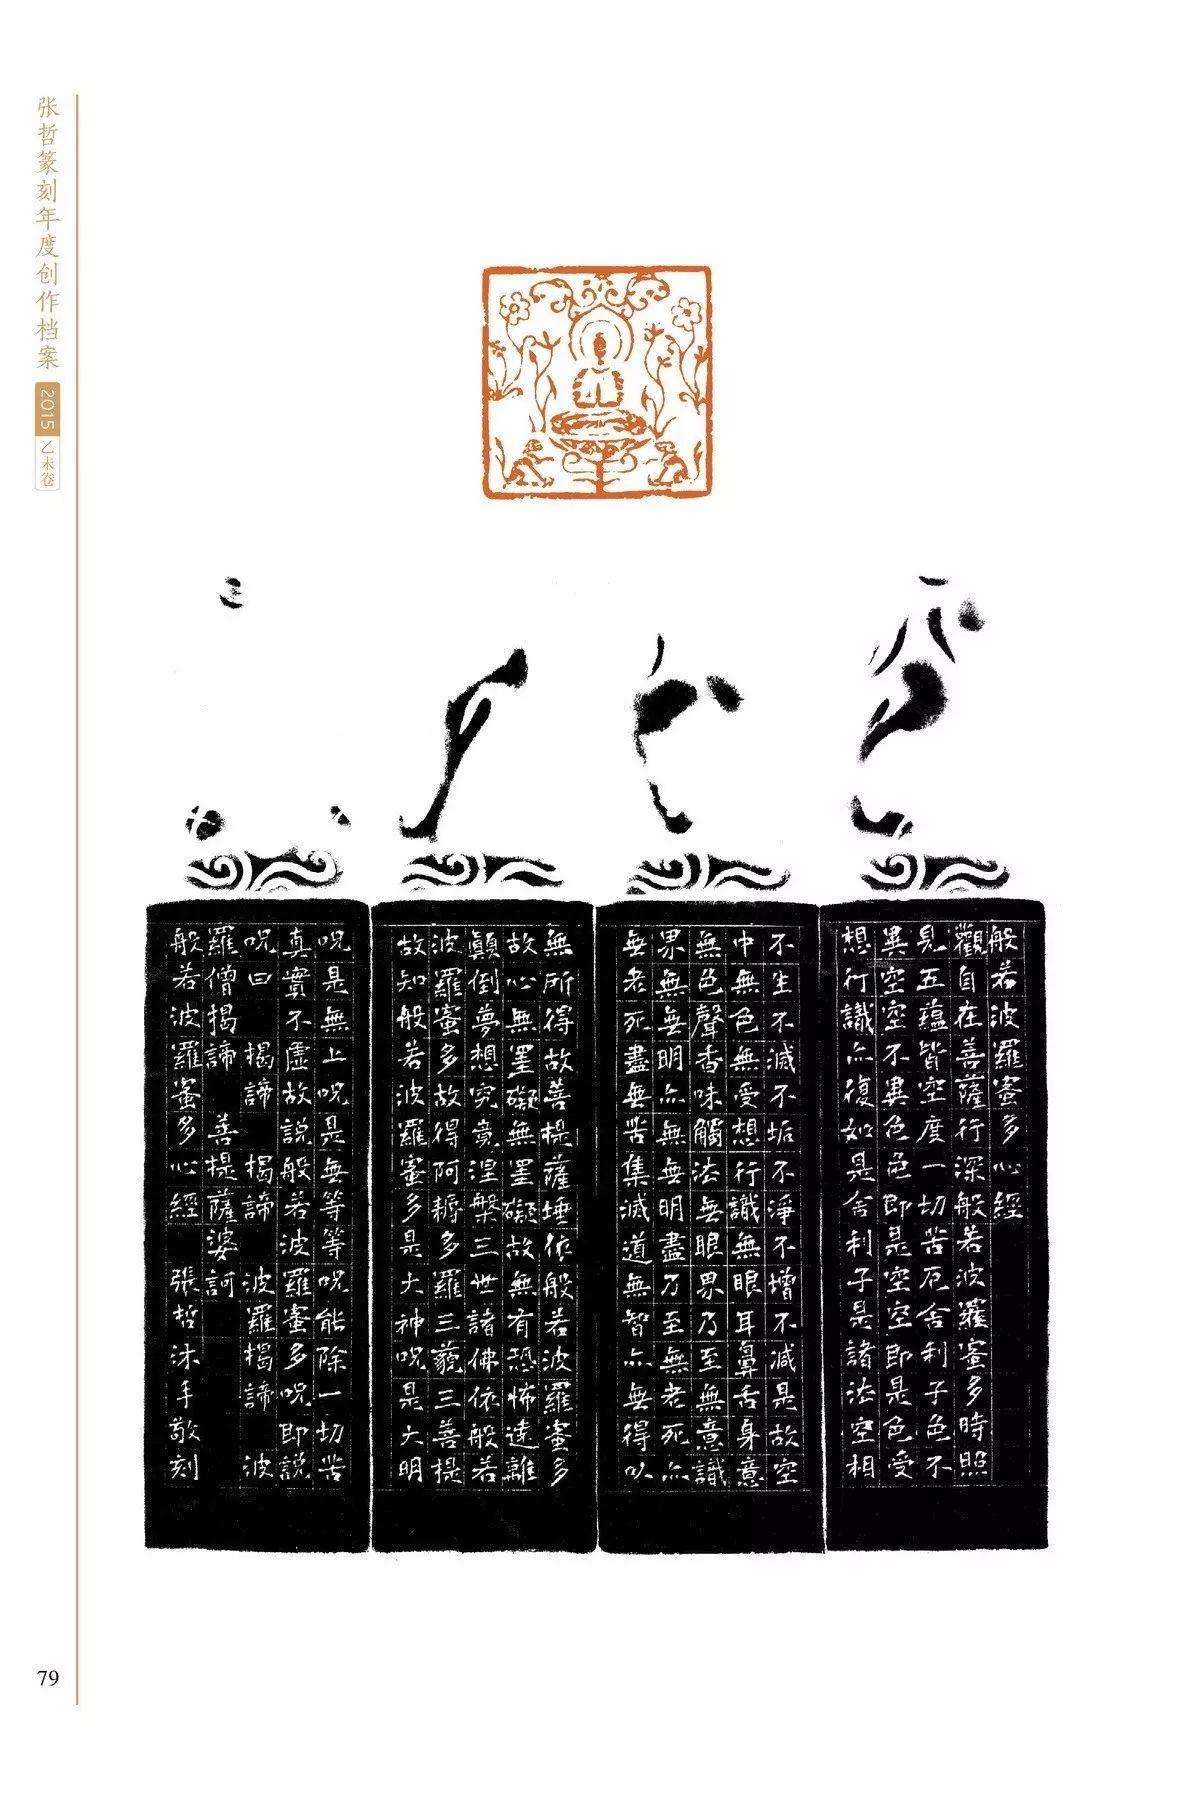 张哲篆刻年度创作档案
2015
乙未卷
般若波羅蜜多心經
觀自在菩薩行深般若波羅蜜多時照
見五蘊皆空度一切苦厄舍利子色不
異空空不異色色即是空空即是色受
想行識亦復如是舍利子是諸法空相
不生不滅不垢不淨不增不減是故空
中無色無受想行識無眼耳鼻舌身意
無色聲香味觸法無眼界乃至無意識
界無無明亦無無明盡乃至無老死亦
無老死盡無苦集滅道無智亦無得以
無所得故菩提薩埵依般若波羅蜜多
故心無罣礙無罣礙故無有恐怖遠離
顛倒夢想究竟涅槃三世諸佛依般若
波羅蜜多故得阿耨多羅三藐三菩提
故知般若波羅蜜多是大神呪是大明
呪是無上呪是無等等呪能除一切苦
真實不虛故說般若波羅蜜多呪即說
呪曰 揭諦 揭諦 波羅揭諦 波
羅僧揭諦 菩提薩婆訶
般若波羅蜜多心經 張哲沐手敬刻
79